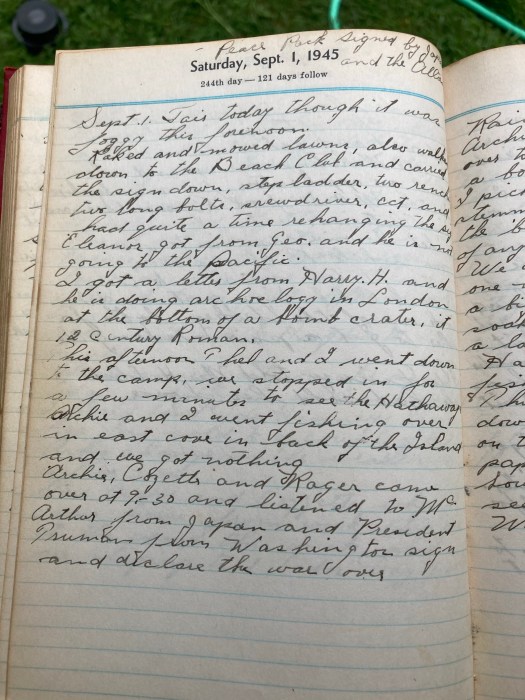 - Peace Pack signed by Jap
and the Alli
Saturday, Sept. 1, 1945
244th day — 121 days follow
Sept. 1. Fair today though it was
foggy this forenoon.
Raked and mowed lawns, also walk
down to the Beach Club and carried
the sign down, step ladder, two renc
two long bolts, srewdriver, ect. and
had quite a time rehanging the s
Eleanor got from Geo. and he is not
going to the Pacific.
I got a letter from Harry. H. and
he is doing archoelogy in London
at the bottom of a bomb crater, it
12 century Roman.
This afternoon Thel and I went down
to the camp, we stopped in for
a few minutes to see the Hathaway
Archie and I went fishing over
in east cove in back of the Island
and we got nothing
Archie, Cozette and Roger came
over at 9-30 and listened to Mc
Arthur from Japan and President
Truman from Washington sign
and diclare the war over
Rai
Archi
over t
a bo
I pic
stemm
the b
of any
We
one
a bi
soak
a la
Ha
fis
Th
dow
on t
pap
hou
see
W